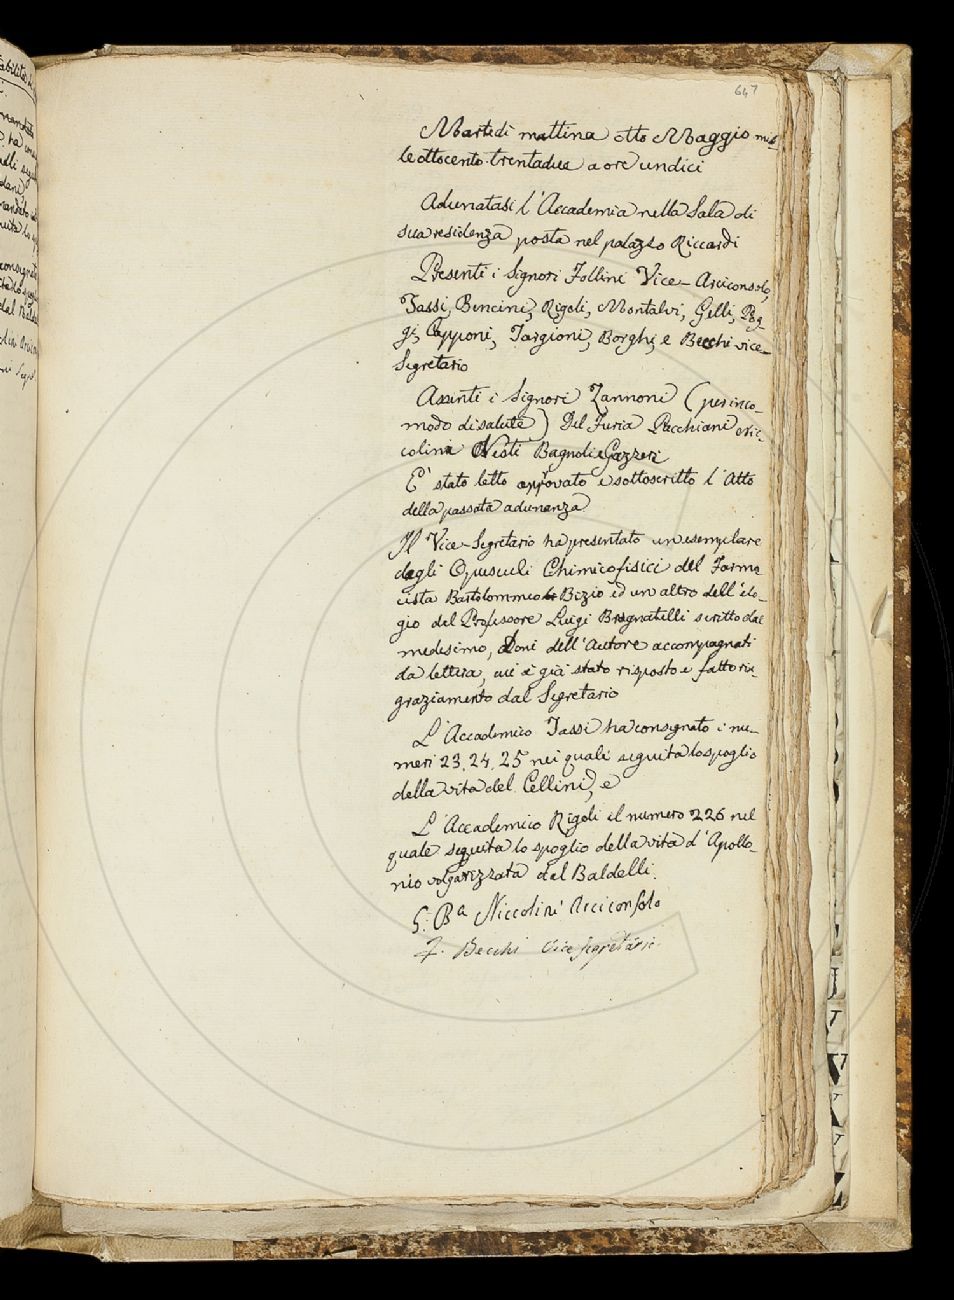 647
Martedì mattina otto Maggio mil-
le ottocento trentadue a ore undici
Adunatasi l'Accademia nella Sala di
sua residenza posta nel palazzo Riccardi
Presenti i Signori Follini Vice-Arciconsolo,
Tassi, Bencini, Rigoli, Montalvi, Gelli, Pog-
gi, Capponi, Targioni, Borghi, e Becchi vice-
Segretario
Assenti i Signori Zannoni (per inco-
modo di salute) Del Furia Pacchiani Nic-
colini Nesti Bagnoli e Gazzeri
E' stato letto approvato e sottoscritto l'Atto
della passata adunanza
Il Vice-Segretario ha presentato un esemplare
degli Opusculi Chimico fisici del Farma
cista Bartolommeo Bizio ed un altro dell'elo-
gio del Professore Luigi Brugnatelli scritto dal
medesimo, Doni dell'Autore accompagnati
da lettera, cui è già stato risposto e fatto rin-
graziamento dal Segretario
L'Accademico Tassi ha consegnato i nu-
meri 23, 24, 25 nei quali seguita lo spoglio
della vita del Cellini, e
L'Accademico Rigoli il numero 226 nel
quale seguita lo spoglio della vita d'Apollo-
nio volgarizzata dal Baldelli.
G. Ba Niccolini Arciconsolo
F. Becchi Vice Segretario